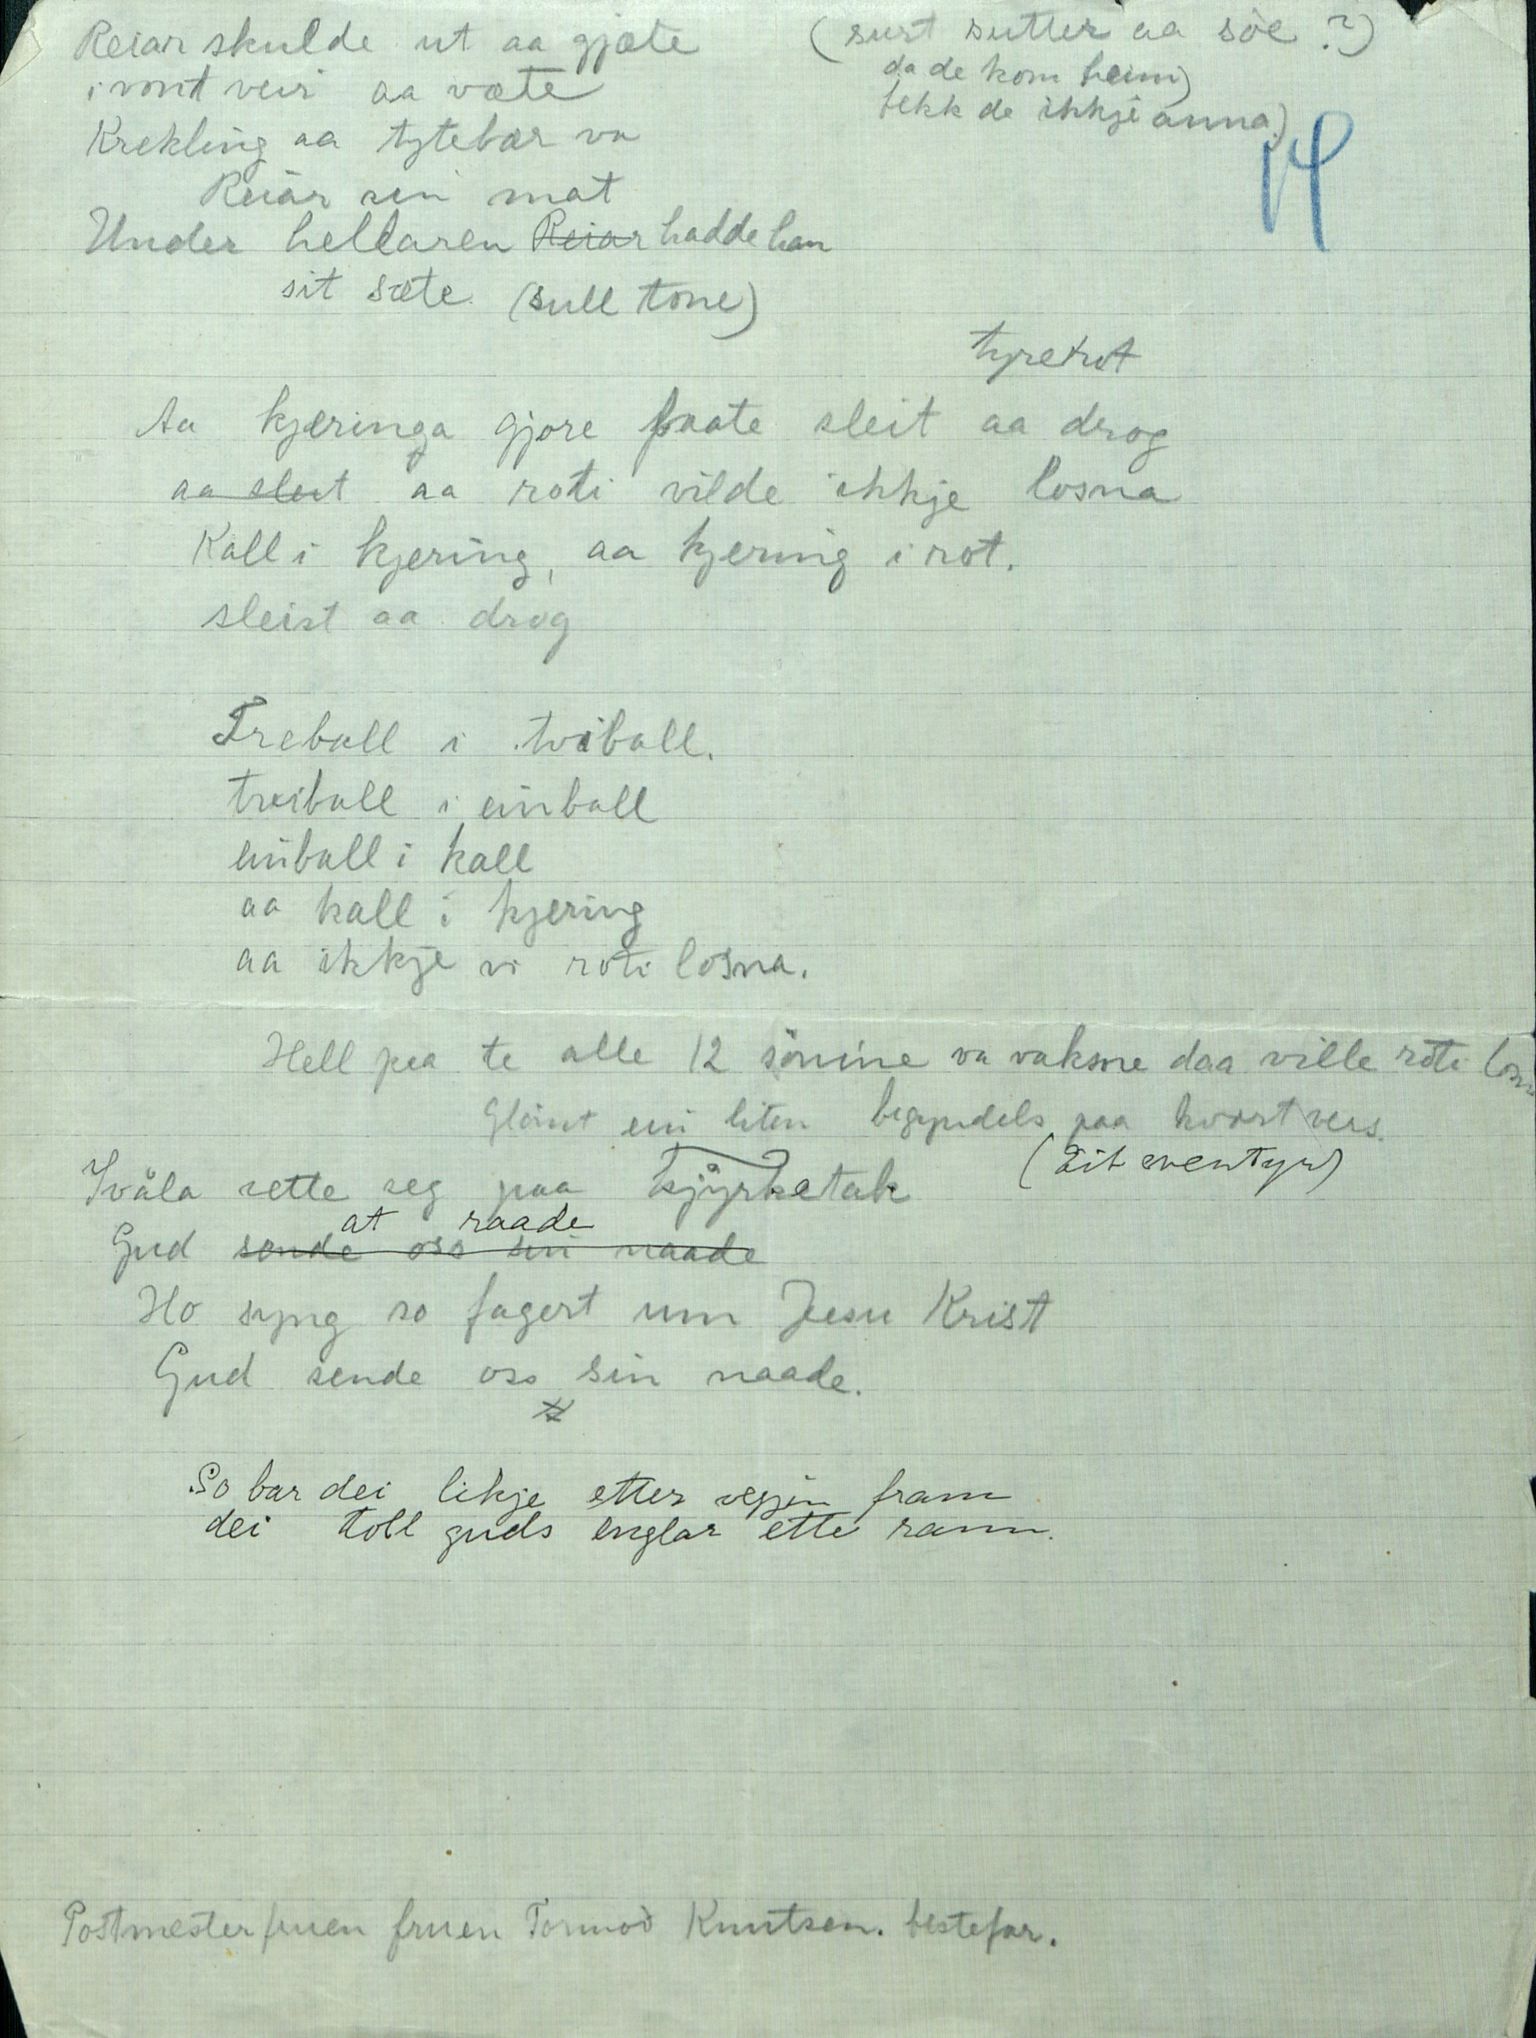 Reiar skulde ut aa gjæte
i vont veir aa væte
Krekling aa tytebær va
Reiar sin mat
Under hellaren Reiar hadde han
sit sæte (sull tone)
(surt sutter aa söe ?)
da de kom heim)
fekk de ikkje anna)
14
tyrerot
Aa kjeringa gjore faate sleit aa drog
aa sleit aa roti vilde ikkje losna
Kall i kjering, aa kjering i rot.
sleist aa drog
Treball i tviball.
tveiball i einball
einball i kall
aa kall i kjering
aa ikkje vi roti losna.
Hell paa te alle 12 sönine va vaksne daa ville roti losn
Glöimt ein liten begyndels paa kvart vers.
(Eit eventyr)
Svåla sette seg paa kjyrketak
at raade
Gud sende oss sin naade
Ho syng so fagert um Jesu Krist
Gud sende oss sin naade.
So bar dei likje etter vegjin fram
dei toll guds englar ette rann.
Postmesterfruen fruen Tormod Knutsen. bestefar.